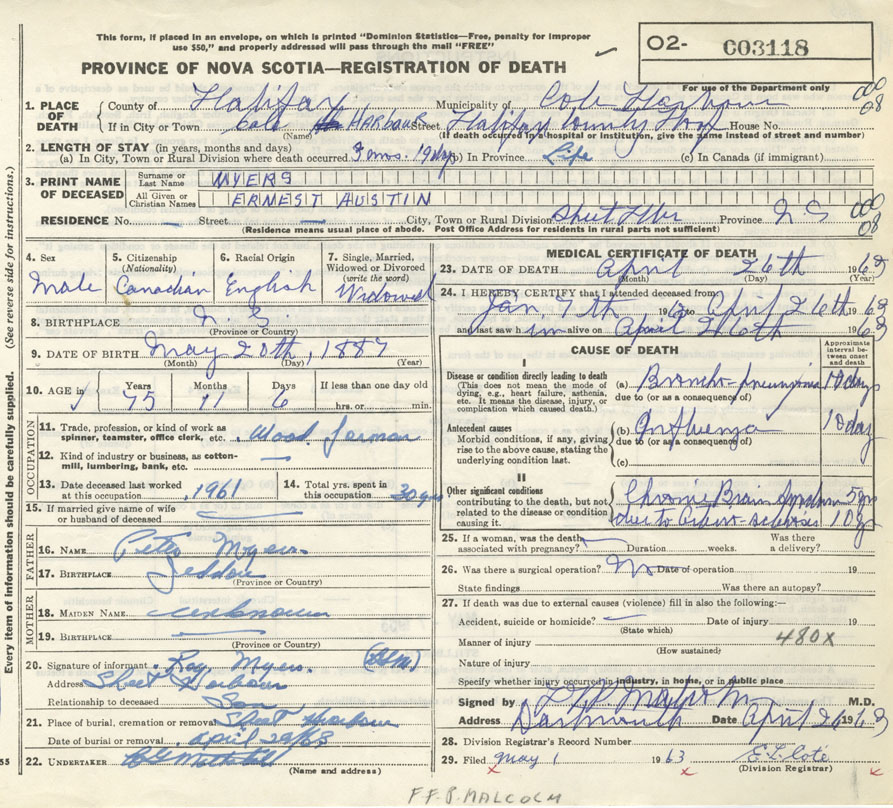 This form, if placed in an envelope, on which is printed "Dominion Statistics—Free, penalty for improper
use $50," and properly addressed will pass through the mail "FREE"
O2- C03118
For use of the Department only
PROVINCE OF NOVA SCOTIA—REGISTRATION OF DEATH
1. PLACE OF DEATH County of Halifax Municipality of Cole Harbour 000 08
If in City or Town Cole HARBOUR Street Halifax County Hosp House No.
(Name) (If death occurred in a hospital or institution, give the name instead of street and number)
2. LENGTH OF STAY (in years, months and days)
(a) In City, Town or Rural Division where death occurred 3 mos. 19 dys (b) In Province Life (c) In Canada (if immigrant)
3. PRINT NAME OF DECEASED Surname or Last Name MYERS
All Given or Christian Names ERNEST AUSTIN
RESIDENCE No. — Street — City, Town or Rural Division Sheet Hbr Province N.S 000 08
(Residence means usual place of abode. Post Office Address for residents in rural parts not sufficient)
(See reverse side for instructions.)
Every item of information should be carefully supplied.
4. Sex Male
5. Citizenship (Nationality) Canadian
6. Racial Origin English
7. Single, Married, Widowed or Divorced (write the word) Widowed
8. BIRTHPLACE N.S.
(Province or Country)
9. DATE OF BIRTH May 20th, 1887
(Month) (Day) (Year)
10. AGE in Years 75 Months 11 Days 6 If less than one day old hrs. or min.
OCCUPATION
11. Trade, profession, or kind of work as spinner, teamster, office clerk, etc.
12. Kind of industry or business, as cotton-mill, lumbering, bank, etc. —
13. Date deceased last worked at this occupation 1961
14. Total yrs. spent in this occupation 30 yrs
15. If married give name of wife or husband of deceased —
FATHER
16. NAME Peter Myers.
17. BIRTHPLACE
(Province or Country)
MOTHER
18. MAIDEN NAME unknown
19. BIRTHPLACE —
(Province or Country)
20. Signature of informant Roy Myers.
Address Sheet Harbour
Relationship to deceased Son
21. Place of burial, cremation or removal Sheet Harbour
Date of burial or removal April 29/63
22. UNDERTAKER
(Name and address)
MEDICAL CERTIFICATE OF DEATH
23. DATE OF DEATH April 26th 1963
(Month) (Day) (Year)
24. I HEREBY CERTIFY that I attended deceased from
Jan. 7th 1963 to April 26th 1963
and last saw him alive on April 26th 1963
CAUSE OF DEATH
Approximate interval between onset and death
I
Disease or condition directly leading to death
(This does not mean the mode of dying, e.g., heart failure, asthenia, etc. It means the disease, injury, or complication which caused death.)
(a) Broncho-pneumonia 10 days
due to (or as a consequence of)
Antecedent causes
Morbid conditions, if any, giving rise to the above cause, stating the underlying condition last.
(b) Influenza 10 day
due to (or as a consequence of)
(c)
II
Other significant conditions
contributing to the death, but not related to the disease or condition causing it.
Chronic Brain Syndrome 5 yrs
due to Arterio-sclerosis 10 yrs
25. If a woman, was the death associated with pregnancy? Duration weeks. Was there a delivery?
26. Was there a surgical operation? No Date of operation 19
State findings Was there an autopsy?
27. If death was due to external causes (violence) fill in also the following:—
Accident, suicide or homicide? — Date of injury 19
(State which)
Manner of injury 480X
(How sustained)
Nature of injury
Specify whether injury occurred in industry, in home, or in public place
Signed by F.F.P. Malcolm M.D.
Address Dartmouth Date April 26 1963
28. Division Registrar's Record Number
29. Filed May 1 1963 E.L. Cote
(Division Registrar)
55
F.F.P. MALCOLM